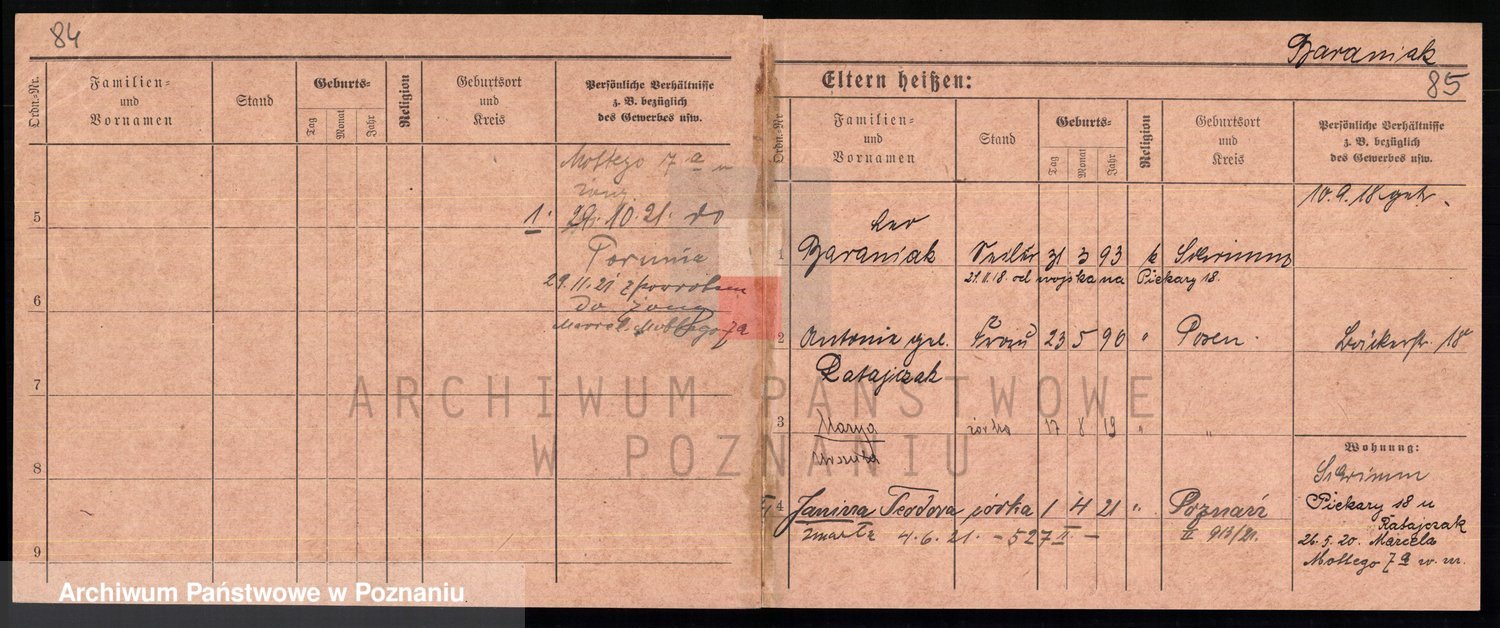 84
Ordn.-Nr.
Familien-
und
Vornamen
Stand
Geburts-
Tag
Monat
Jahr
Religion
Geburtsort
und
Kreis
Persönliche Verhältnisse
z. B. bezüglich
des Gewerbes usw.
Mottego 7 a u
żony
5
1. 29. 10. 21. do
Torunia
6
29. 11. 21 z powrotem
do żony
Marcel. Mottego 7a
7
8
9
Baraniak
Eltern heißen:
85
Ordn.-Nr
Familien-
und
Vornamen
Stand
Geburts-
Tag
Monat
Jahr
Religion
Geburtsort
und
Kreis
Persönliche Verhältnisse
z. B. bezüglich
des Gewerbes usw.
10. 9. 18 getr.
Leo
1 Baraniak 31 3 93 k Schrimm
21. 11. 18. od wojska na Piekary 18.
2 Antonie geb. Frau 23 5 90 " Posen. Bäckerstr. 18
Ratajczak
3 Marya córka 17 8 19 " "
Urszula
Wohnung:
Schrimm
4 Janina Teodora córka 1 4 21 " Poznań
Piekary 18 u
Ratajczak
zmarła 4. 6. 21. - 527 II - II 913/21.
26. 5. 20. Marcela
Mottego 7 a w. m.
ARCHIWUM PAŃSTWOWE
W POZNANIU
Archiwum Państwowe w Poznaniu